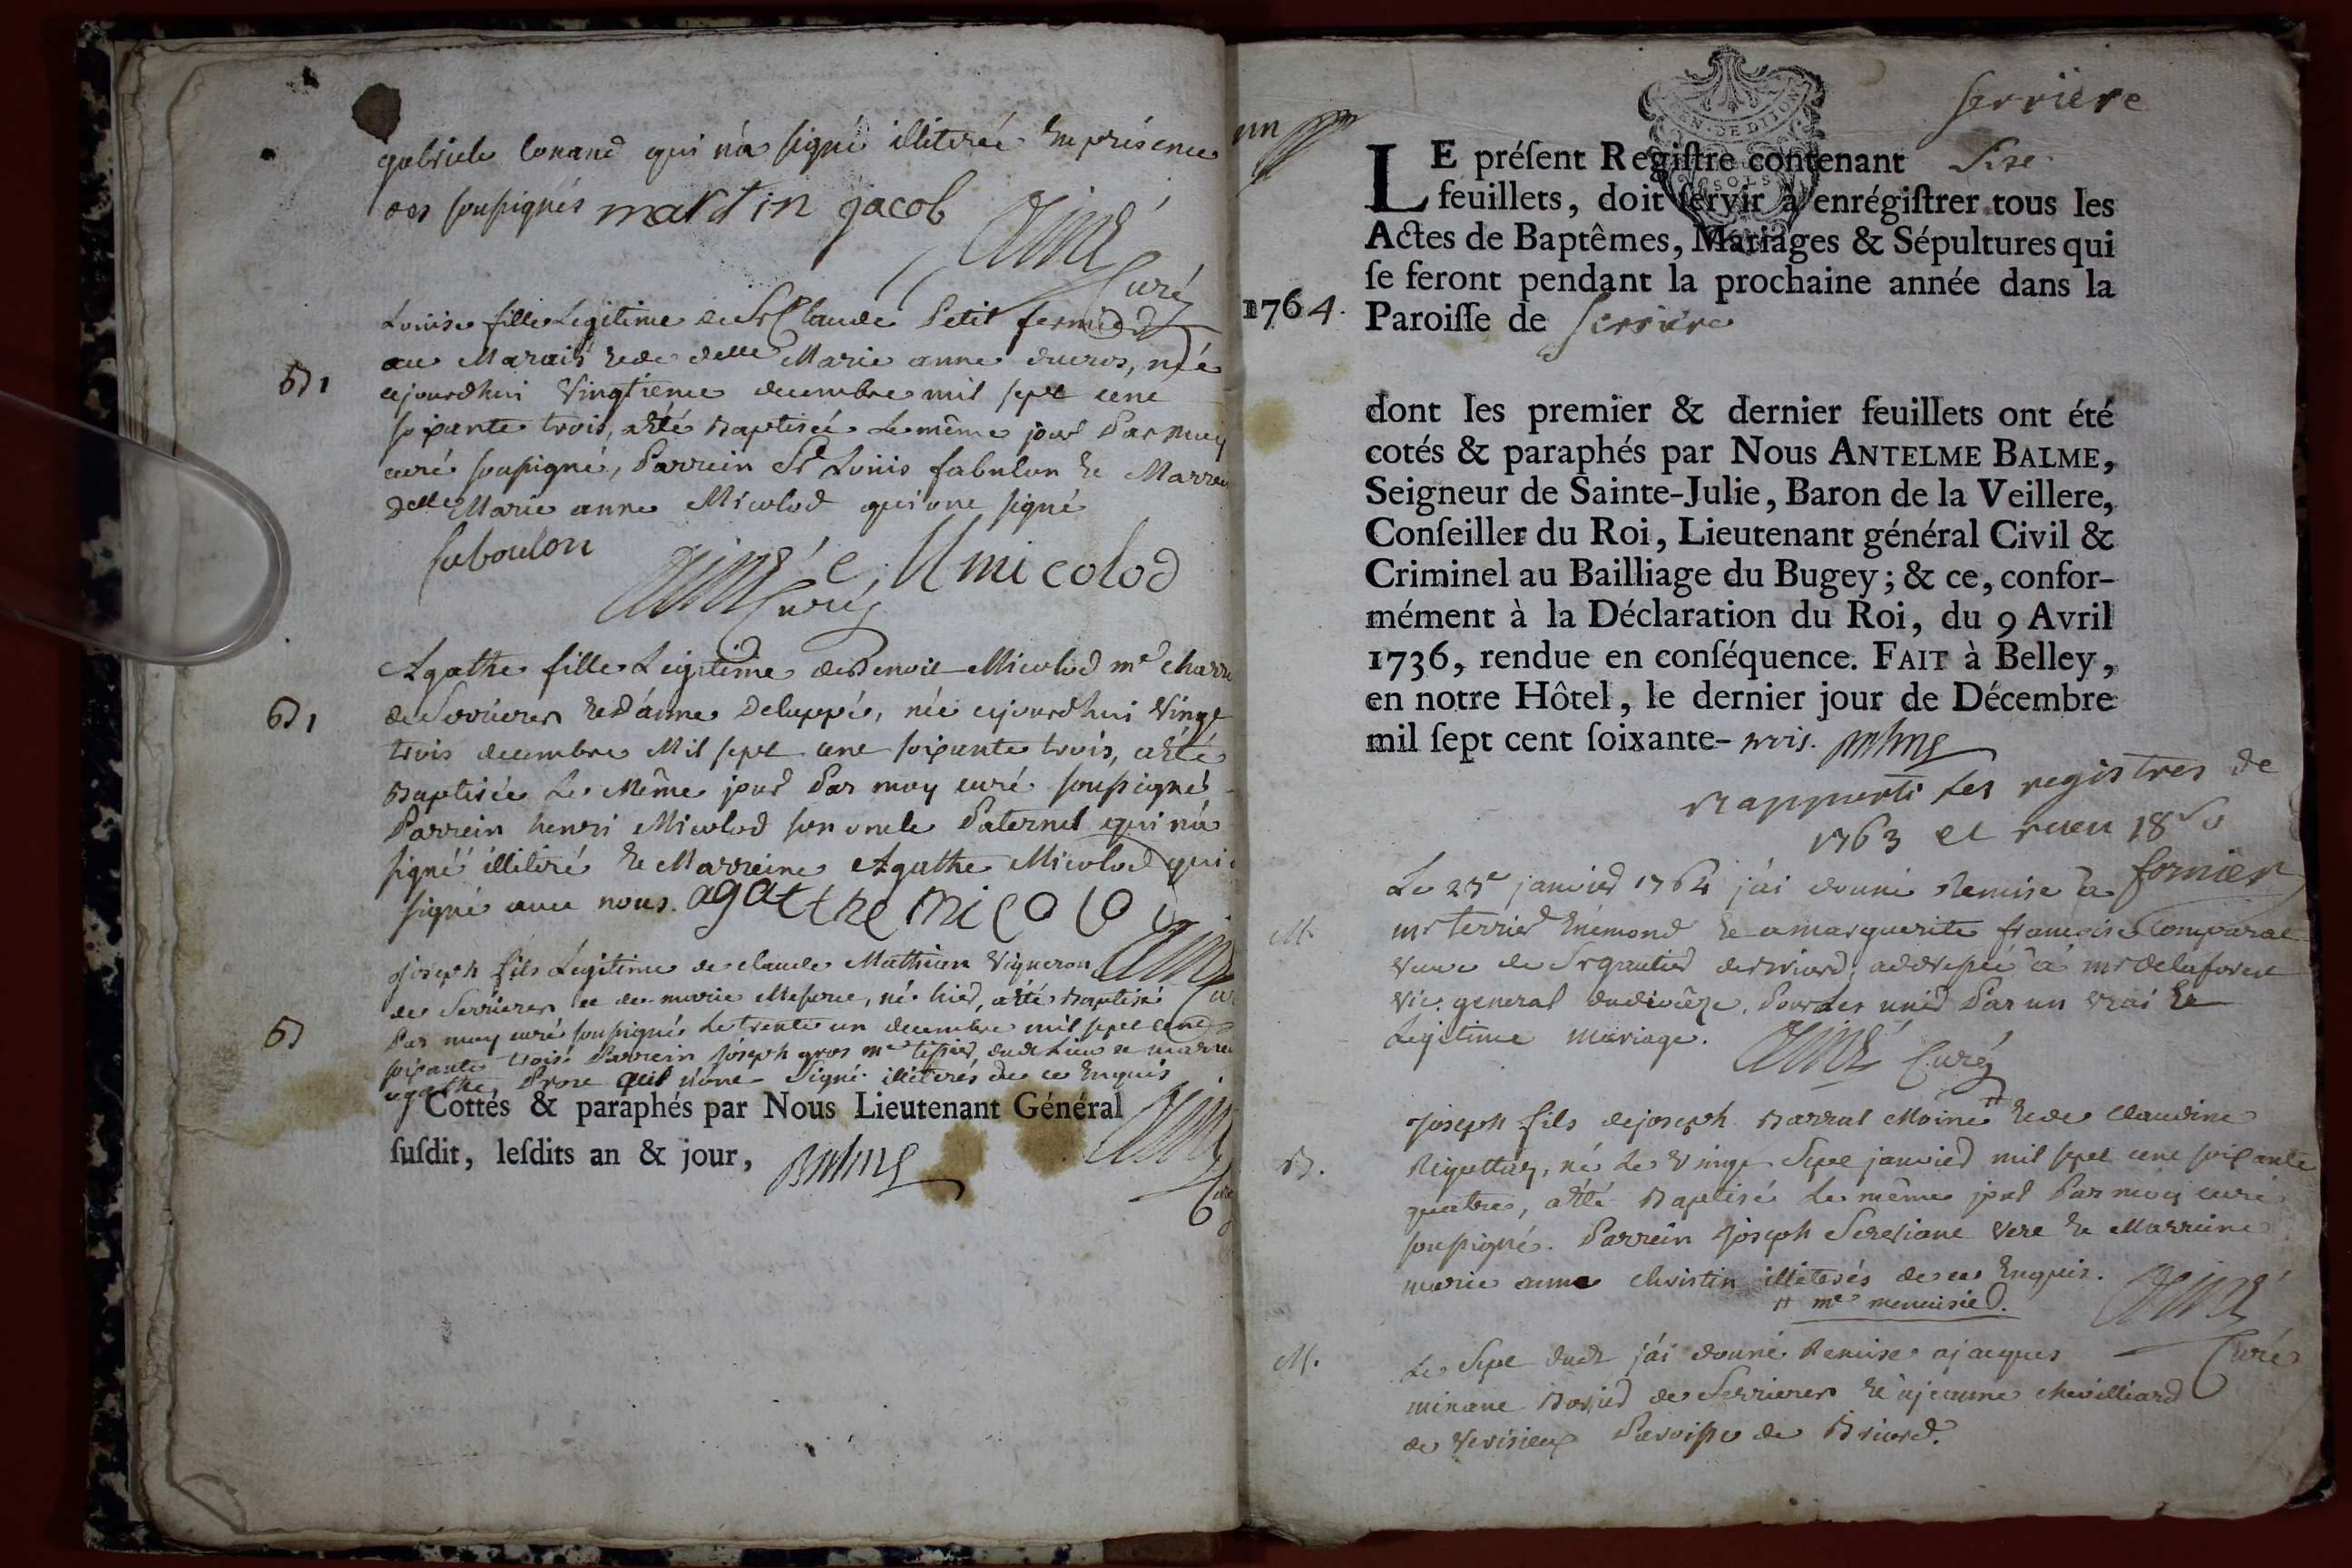 gabriele conand qui n'a signé illiterée En présence
des soussignés martin jacob
Aimé
Curé
Louise fille Legitime de Sr Claude Petit fermier
au Marais Et de delle Marie anne ducros, née
B 1
cejourdhui Vingtieme decembre mil sept cent
soixante trois, a été Baptisée Le même jour Par moy
curé soussigné, Parrein Sr Louis fabulon Et Marreine
delle Marie anne Micolod qui ont signé
faboulon
Aimé Curé
Micolod
Agathe fille Legitime de Benoit Micolod me charr
B 1
de Serrieres Et d'anne Deluppé, née cejourdhui Vingt
trois decembre Mil sept cent soixante trois, a été
Baptisée Le Même jour Par moy curé soussigné
Parrein henri Micolod son oncle Paternel qui n'a
signé illiteré Et Marreine Agathe Micolod qui
signé avec nous. agatthe micolo
Aimé
joseph fils Légitime de claude Mathieu Vigneron
de Serrieres et de marie, né hier, a été Baptisé
B
Par moy curé soussigné Le trente un decembre mil sept cent
soixante trois. Parrein joseph gros me tissier, dudt Lieu et marrei
agathe qui n'ont Signé illiterés de ce Enquis
Cottés & paraphés par Nous Lieutenant Général
susdit, lesdits an & jour,
Balme
Aimé
Curé
un
Serriere
GEN·DE DIJON
LE présent Registre contenant Seze
feuillets, doit servir à enrégistrer tous les
Actes de Baptêmes, Mariages & Sépultures qui
se feront pendant la prochaine année dans la
1764. Paroisse de Serriere
dont les premier & dernier feuillets ont été
cotés & paraphés par Nous ANTELME BALME,
Seigneur de Sainte-Julie, Baron de la Veillere,
Conseiller du Roi, Lieutenant général Civil &
Criminel au Bailliage du Bugey; & ce, confor-
mément à la Déclaration du Roi, du 9 Avril
1736, rendue en conséquence. FAIT à Belley,
en notre Hôtel, le dernier jour de Décembre
mil sept cent soixante-trois. Balme
Rapporté Les registres de
1763 et receu 18
fornier
Le 25e janvier 1764 j'ai donné Remise a
M.
mr terrier Enemond Et a marguerite francoise Comparat
Veuve de Sr gautier de Briord, addressée a mr delaforest
Vic. general du dioceze. Pour Les unir Par un Vrai Et
Legitime mariage.
Aimé Curé
joseph fils de joseph Barrat Moine # Et de Claudine
B.
né Le Vingt Sept janvier mil sept cent soixante
quatre, a été Baptisé Le même jour Par moy curé
soussigné. Parrein joseph Vere Et Marreine
marie anne christin illiterés de ce Enquis.
# me menuisier.
Aimé
Curé
M.
Le Sept dudt j'ai donné Remise a jacques
minane de Serrieres Et a jeanne chevilliard
de Verisieux Paroisse de Briord.